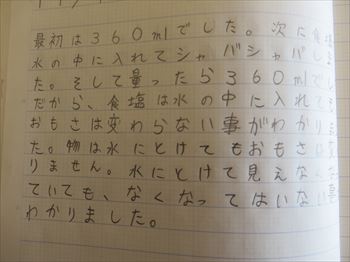 最初は360mlでした。次に食塩
水の中に入れてシャバシャバしま
た。そして量ったら360mlでし
だから、食塩は水の中に入れても
おもさは変わらない事がわかりま
た。物は水にとけてもおもさは変
りません。水にとけて見えなくな
ていても、なくなってはいない事
わかりました。